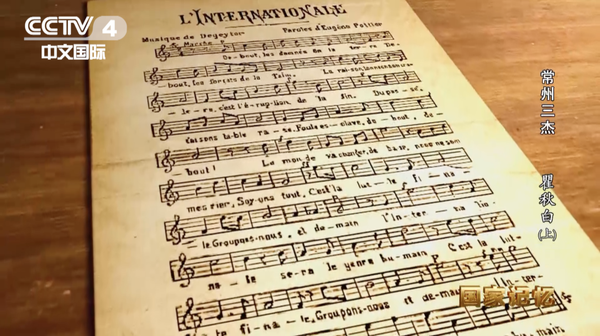 CCTV 4
中文国际
L'INTERNATIONALE
Musique de Degeyter Paroles d'Eugène Pottier
Marche
De-bout, les damnés de la terre De-
bout, les forçats de la faim. La rai-son
-tè-re, c'est l'é-rup-tion de la fin. Du pas-sé,
fai-sons ta-ble ra-se, Foule es-clave, de-bout, de-
bout! Le mon-de va changer de ba-se, nous ne som
mes rien, Soy-ons tout, C'est la lut-te fi-na
-le Groupons-nous, et de-main L'In-ter-na-tio
na-le se-ra le genre hu-main. C'est la lut-
te fi-na-le, Groupons-nous et de-main l'In-ter-
常州三杰 瞿秋白(上)
国家记忆